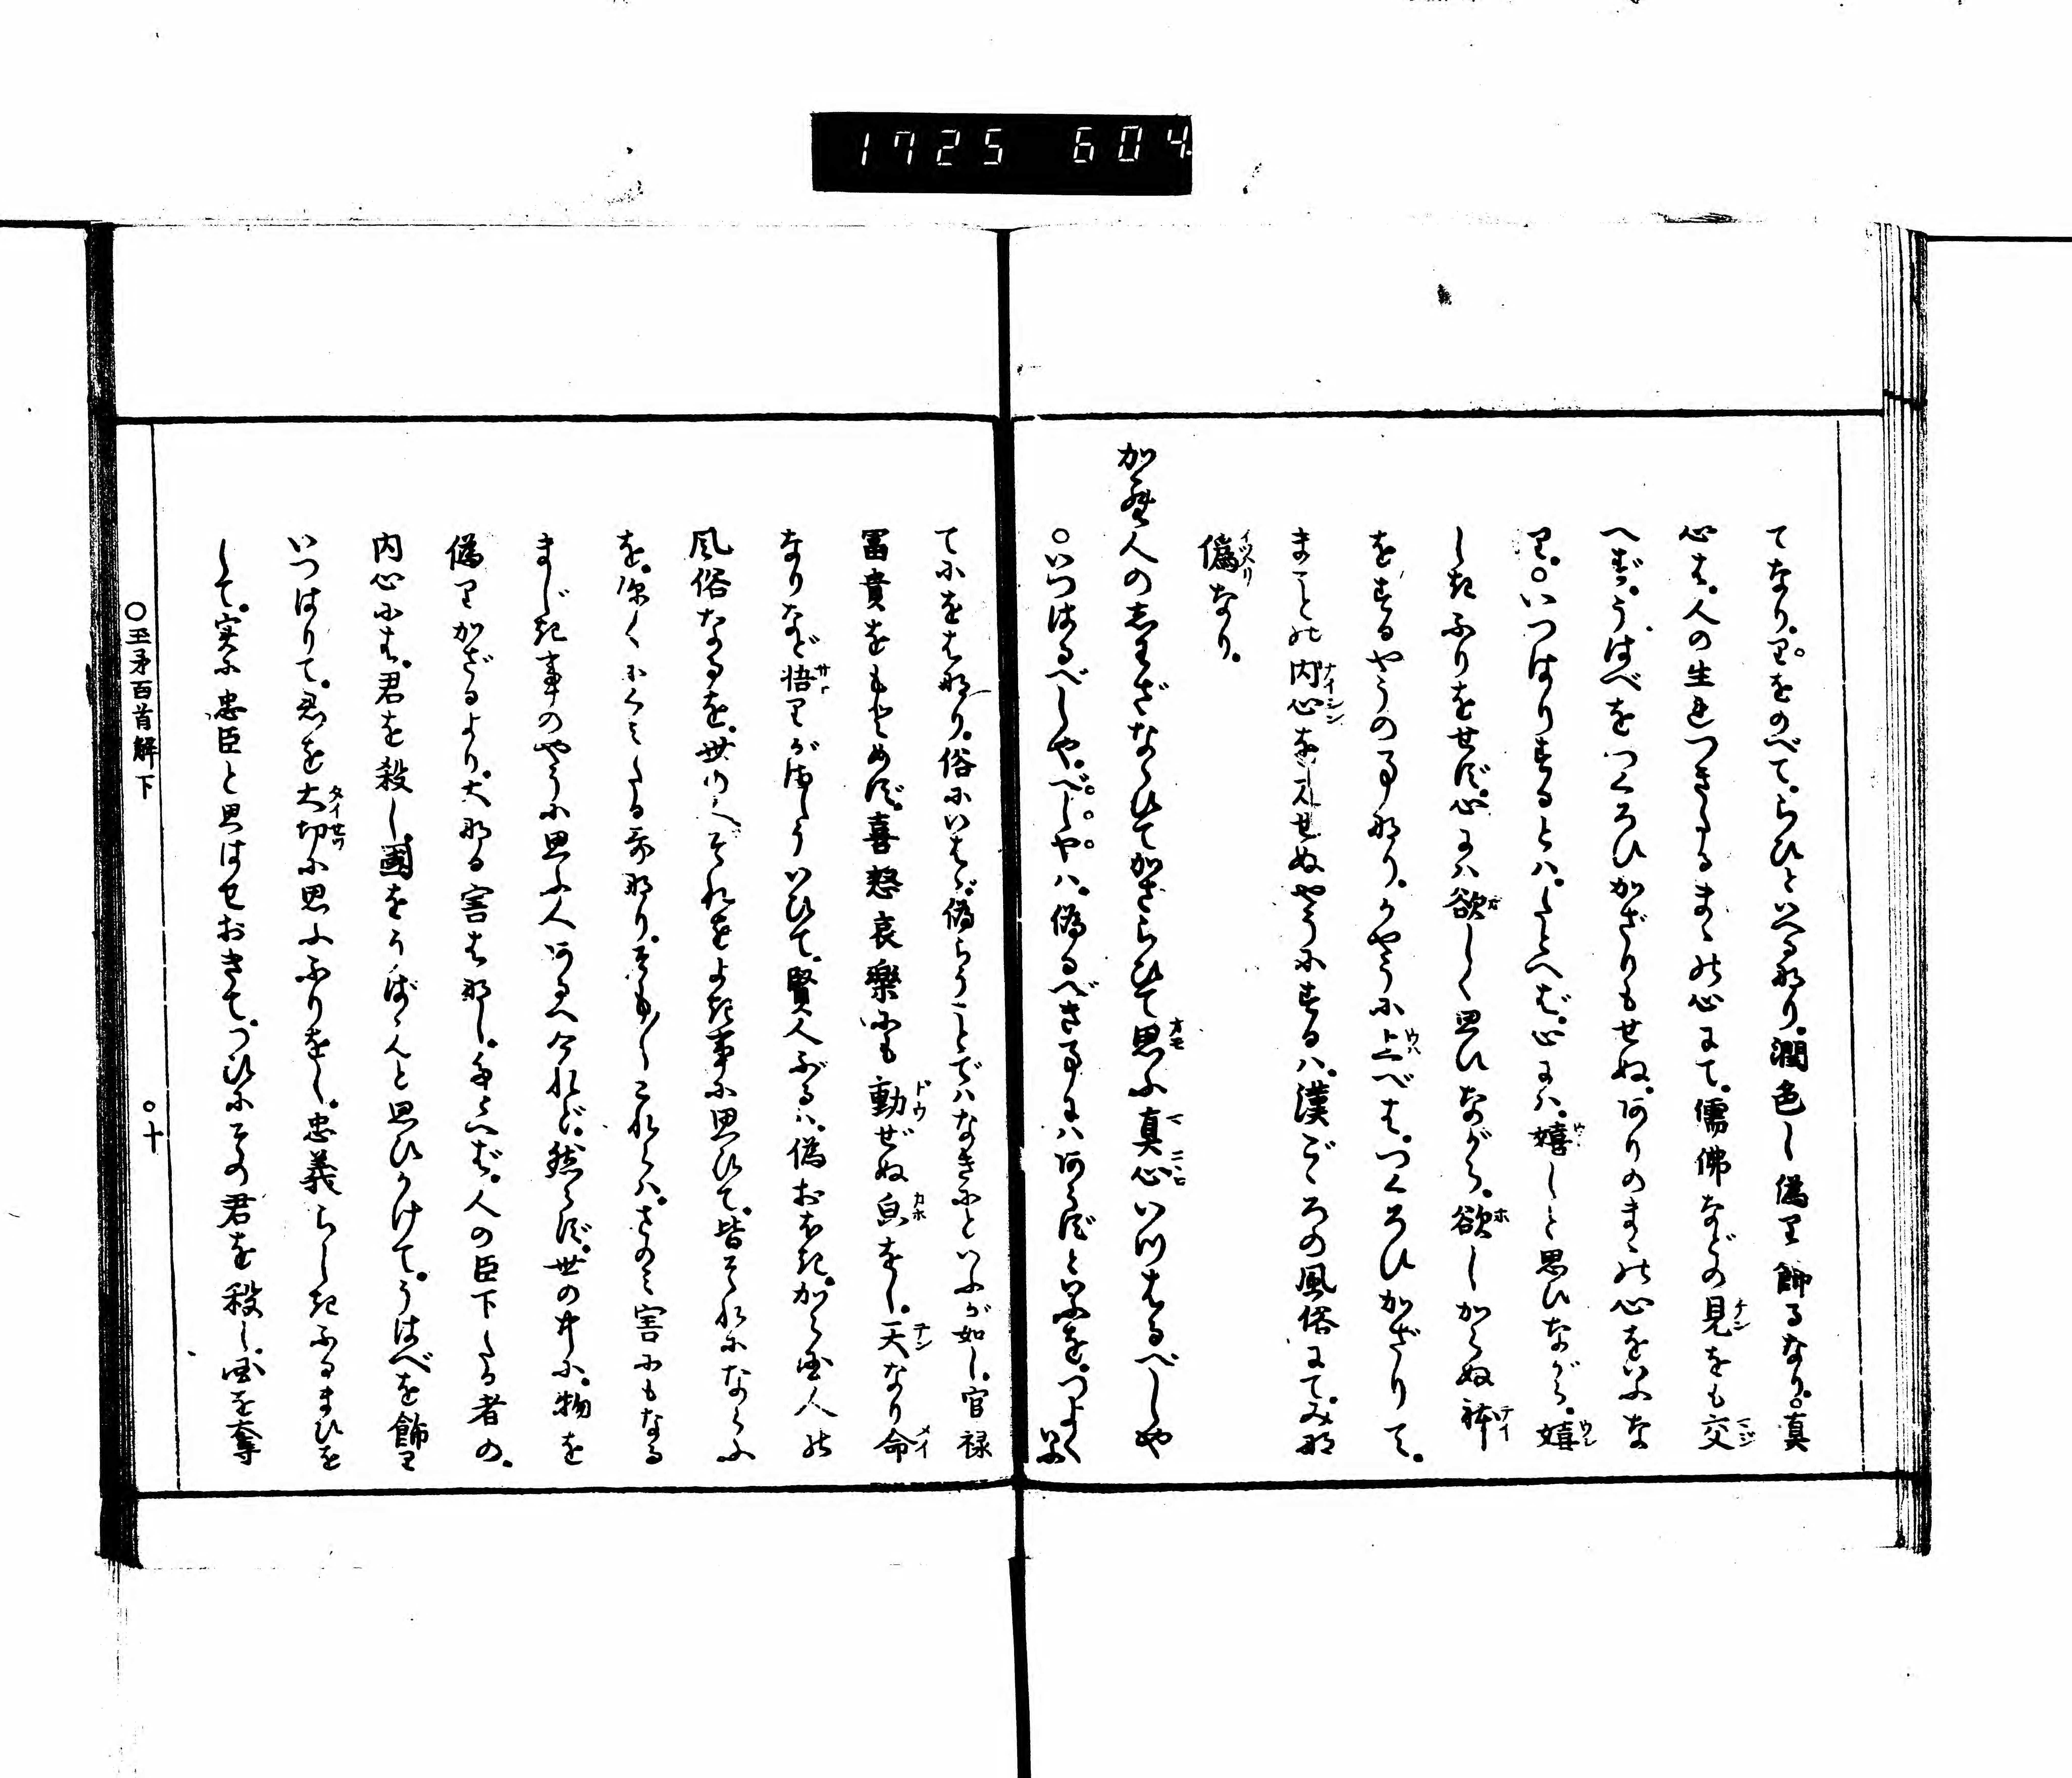 1725 604
てなり。里をのべて。らひといへる那り。潤色し偽里飾るなり。真
心は。人の生れつきたるまゝ能心にて。儒佛などの見をも交
へず。うはべをつくろひかざりもせぬ。ありのまゝ能心をいふな
里。○いつはりするとハ。たとへば。心にハ。嬉しと思ひながら。嬉
しきふりをせず。心にハ欲しく思ひながら。欲しからぬ体
をするやうの事那り。かやうに上べは。つくろひかざりて。
まこと能内心を人見せぬやうにするハ。漢ごゝろの風俗にて。み那
偽なり。
から人のしわざならひてかざらひて思ふ真心いつはるべしや
○いつはるべしや。べしやハ。偽るべき事にハあらずといふを。つよくいふ
てにをは那り。俗にいはゞ。偽らうことでハなきにといふが如し。官禄
冨貴をももとめず。喜怒哀樂にも動ぜぬ皃をし。天なり命
なりなど悟里がましういひて。賢人ぶるハ。偽おほき。から国人能
風俗なるを。世の人それをよき事に思ひて。皆それにならふ
を。深くにくみたる哥那り。そも〳〵これらハ。さのミ害にもなる
まじき事のやうに思ふ人あるべけれど。然らず。世の中に。物を
偽里かざるより。大那る害は那し。たとへば。人の臣下たる者の。
内心には。君を殺し。國をうばゝんと思ひかけて。うはべを飾里
いつはりて。君を大切に思ふふりをし。忠義らしきふるまひを
して。実に忠臣と思はせおきて。つひにその君を殺し。国を奪
○玉矛百首解下　○十